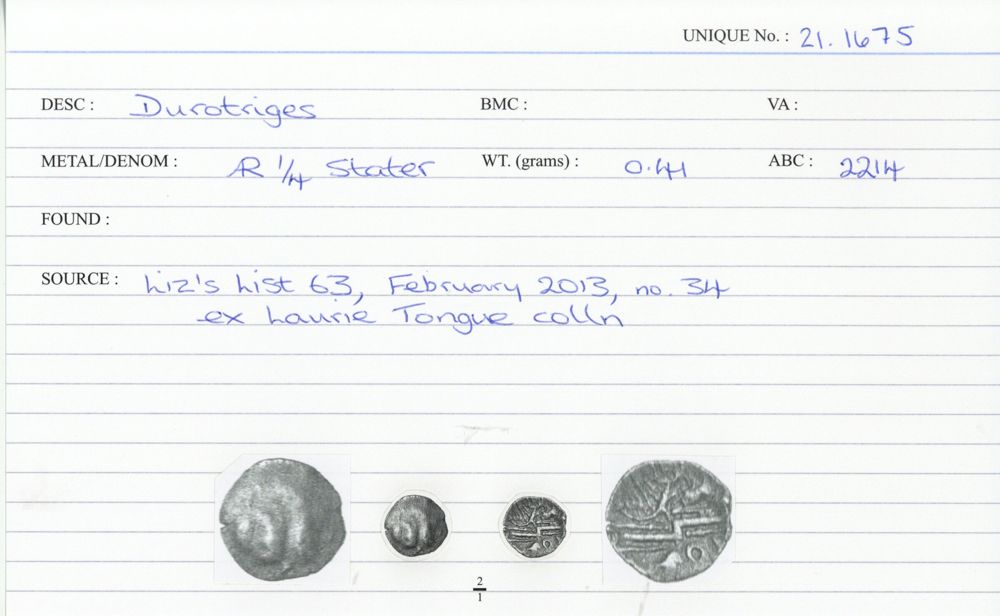 UNIQUE No. : 21.1675
DESC : Durotriges BMC : VA :
METAL/DENOM : AR 1/4 Stater WT. (grams) : 0.41 ABC : 2214
FOUND :
SOURCE : Liz's List 63, February 2013, no. 34
ex Laurie Tongue colln
2
1